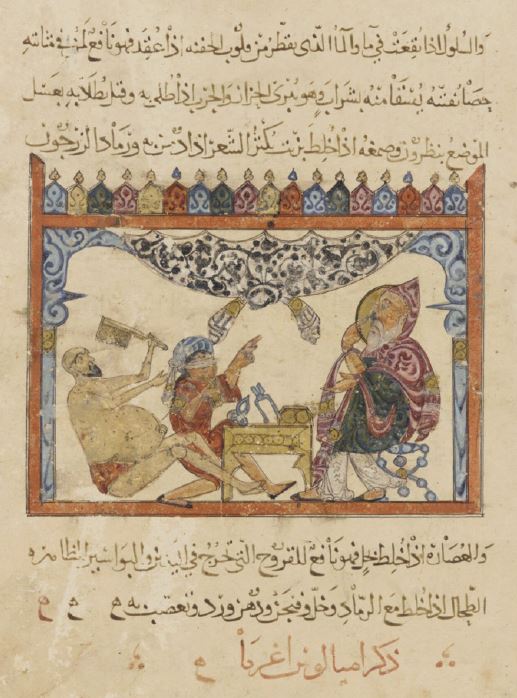 والسلول اذا نقعت في ما والما الذى يقطر من قلوب الجفنه اذا عقد فهو نافع لمن فى مثانته
حصاة تفتته يستقا منه بشراب وهو يبرى الحزاز والجرب اذا طلى به وقبل يطلا به يغسل
الموضع بنطرون وصمغه اذا خلط بزيت يكثر الشعر اذا دهن به ورماد الزرجون
والعصاره اذا خلط بخل فهو نافع للقروح التى تخرج فى والبواسير الظاهره
الطحال اذا خلط مع الرماد وخل وفيجن ودهن ورد وتعصب به
ذكر امبالونس اغريا